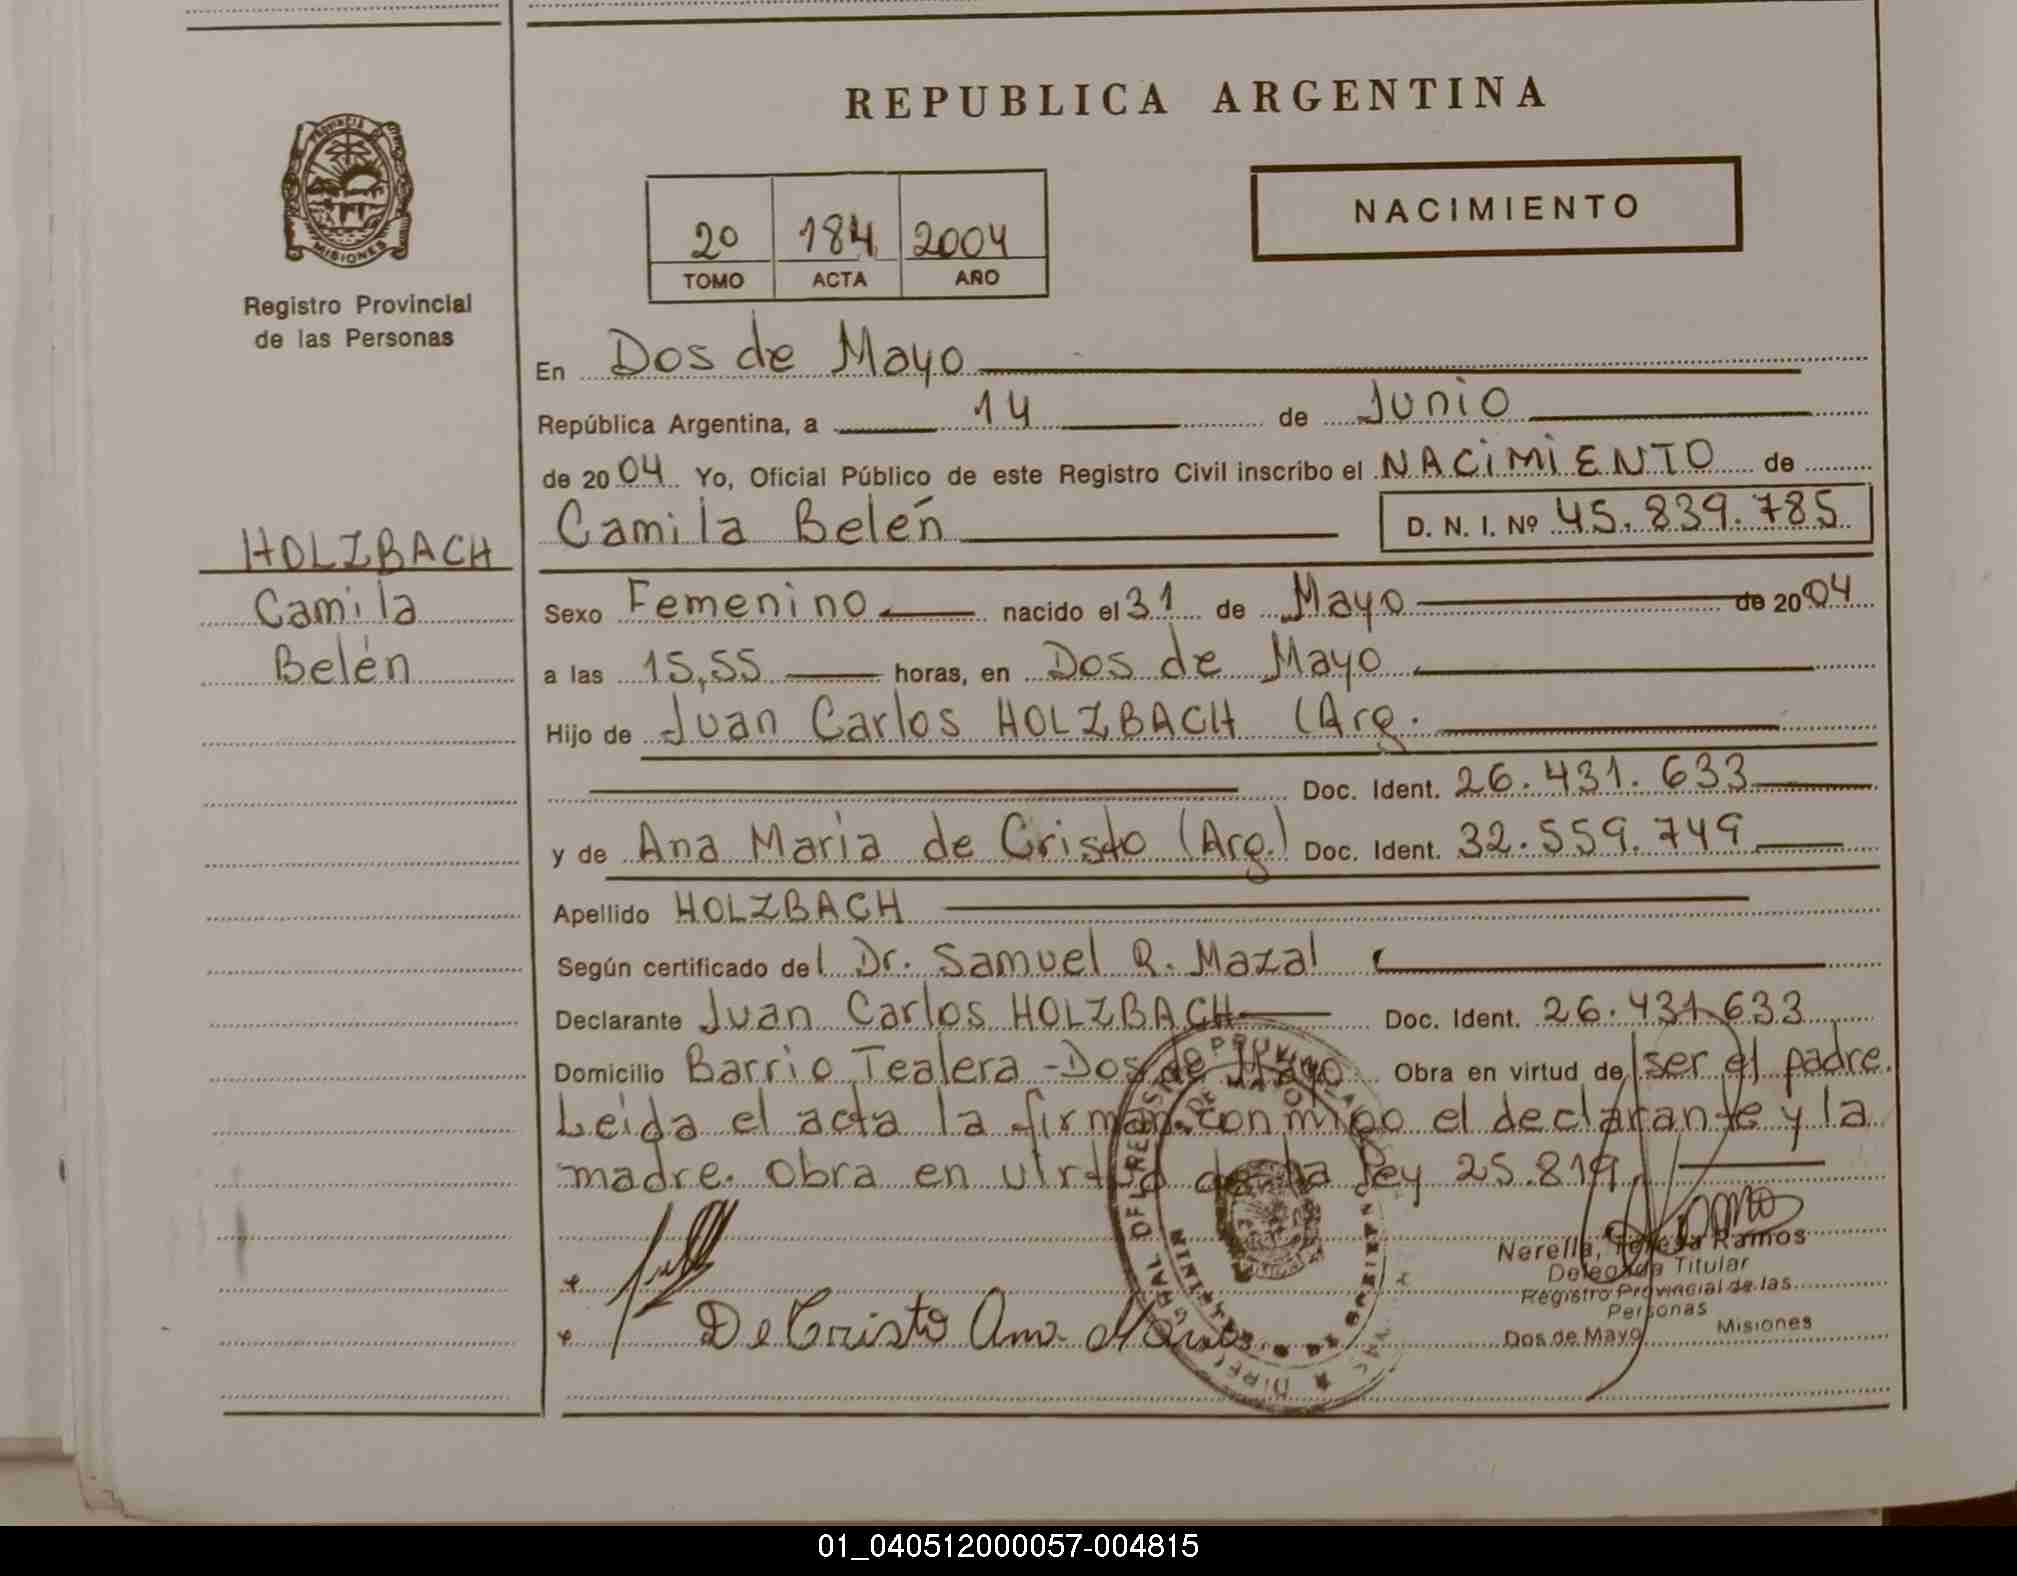 REPUBLICA ARGENTINA
PROVINCIA DE
MISIONES
Registro Provincial
de las Personas
2º 184 2004
TOMO ACTA AÑO
NACIMIENTO
En Dos de Mayo
República Argentina, a 14 de Junio
de 2004 Yo, Oficial Público de este Registro Civil inscribo el NACIMIENTO de
Camila Belén D. N. I. Nº 45.839.785
HOLZBACH
Camila
Belén
Sexo Femenino nacido el 31 de Mayo de 2004
a las 15,55 horas, en Dos de Mayo
Hijo de Juan Carlos HOLZBACH (Arg.
Doc. Ident. 26.431.633
y de Ana Maria de Cristo (Arg.) Doc. Ident. 32.559.749
Apellido HOLZBACH
Según certificado del Dr. Samuel R. Mazal
Declarante Juan Carlos HOLZBACH Doc. Ident. 26.431.633
Domicilio Barrio Tealera - Dos de Mayo Obra en virtud de ser el padre.
Leida el acta la firman conmigo el declarante y la
madre. Obra en virtud de la ley 25.819.
De Cristo Ana Maria
Nerella, Teresa Ramos
Delegada Titular
Registro Provincial de las
Personas
Dos de Mayo Misiones
01_040512000057-004815